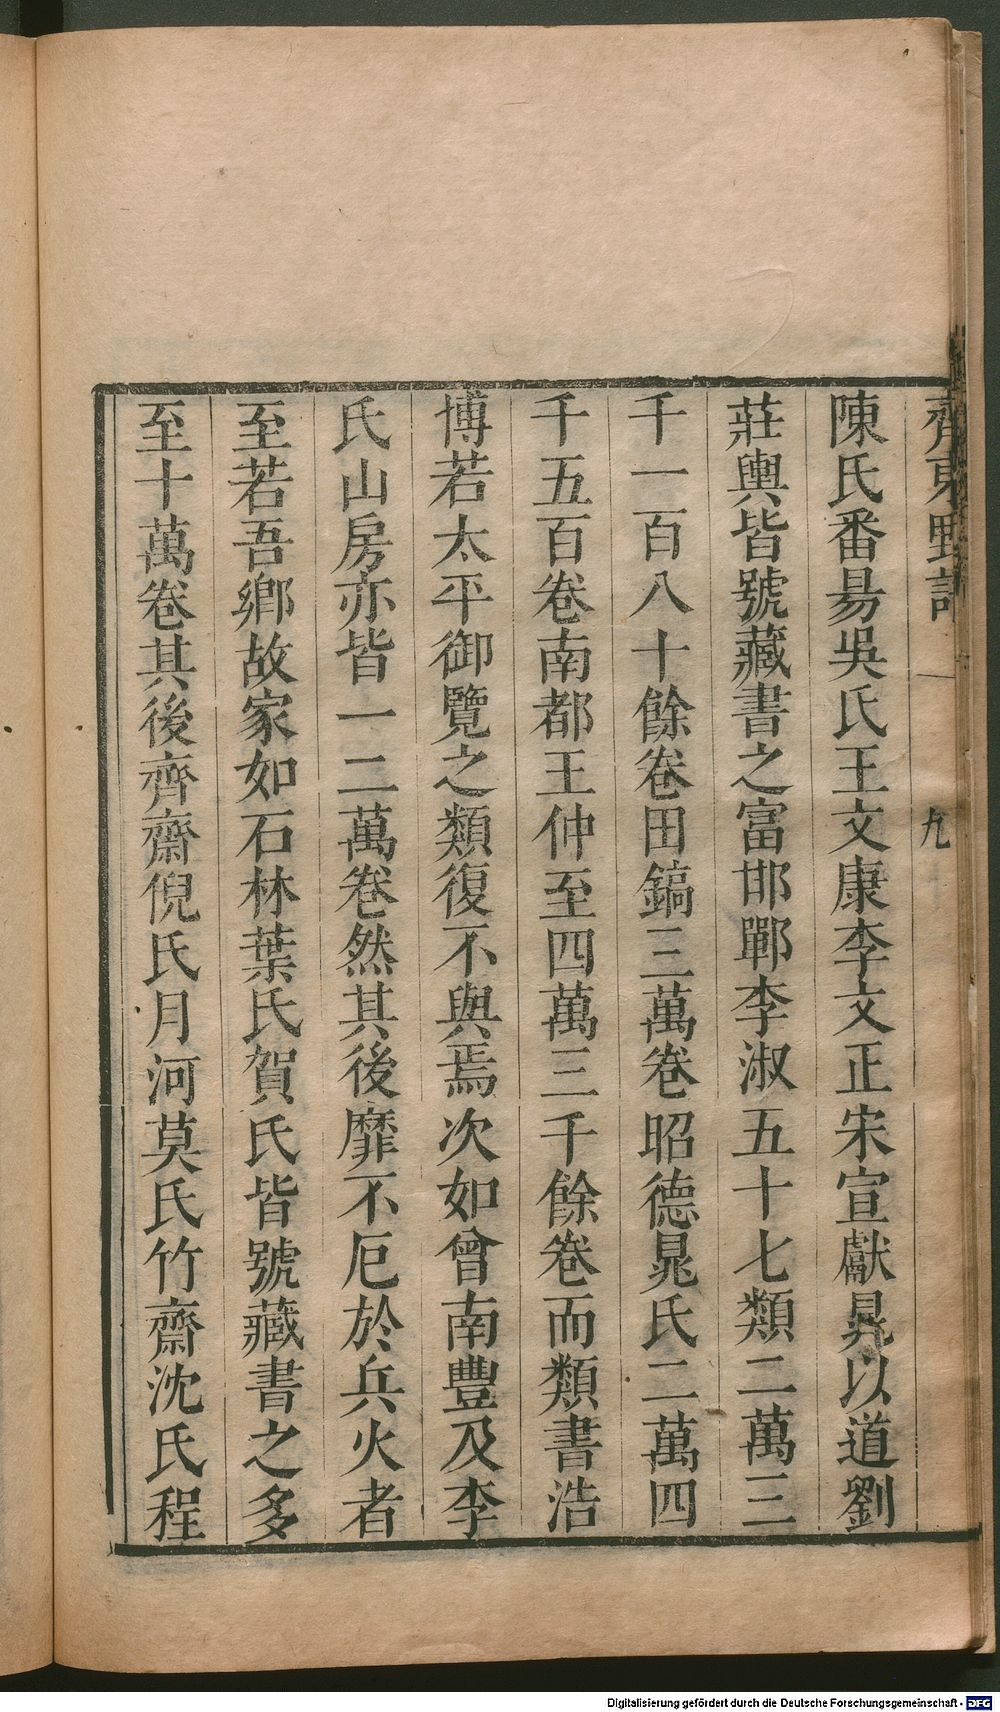 齊東野語
九
陳氏番昜吳氏王文康李文正宋宣獻晁以道劉
莊輿皆號藏書之富邯鄲李淑五十七類二萬三
千一百八十餘卷田鎬三萬卷昭德晁氏二萬四
千五百卷南都王仲至四萬三千餘卷而類書浩
博若太平御覽之類復不與焉次如曾南豐及李
氏山房亦皆一二萬卷然其後靡不厄於兵火者
至若吾鄉故家如石林葉氏賀氏皆號藏書之多
至十萬卷其後齊齋倪氏月河莫氏竹齋沈氏程
Digitalisierung gefördert durch die Deutsche Forschungsgemeinschaft - DFG